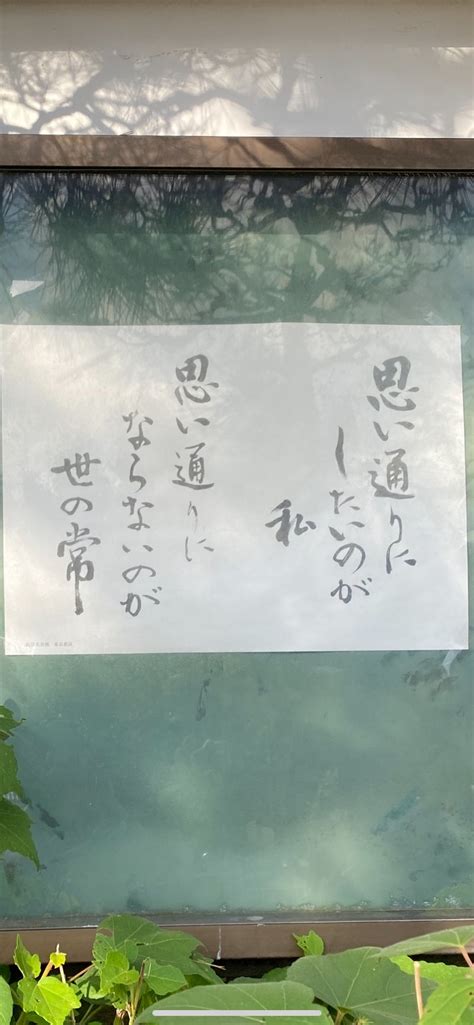 思い通りに
したいのが
私
思い通りに
ならないのが
世の常